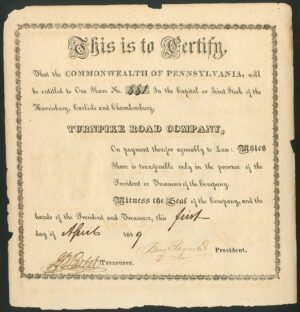 This is to Certify,
That the COMMONWEALTH OF PENNSYLVANIA, will
be entitled to One Share No. 881 In the Capital or Joint Stock of the
Harrisburg, Carlisle and Chambersburg,
TURNPIKE ROAD COMPANY,
On payment thereof agreeably to Law: Which
Share is transferable only in the presence of the
President or Treasurer of the Company.
Witness the Seal of the Company, and the
hands of the President and Treasurer, this first
day of April 1819
President.
Treasurer.